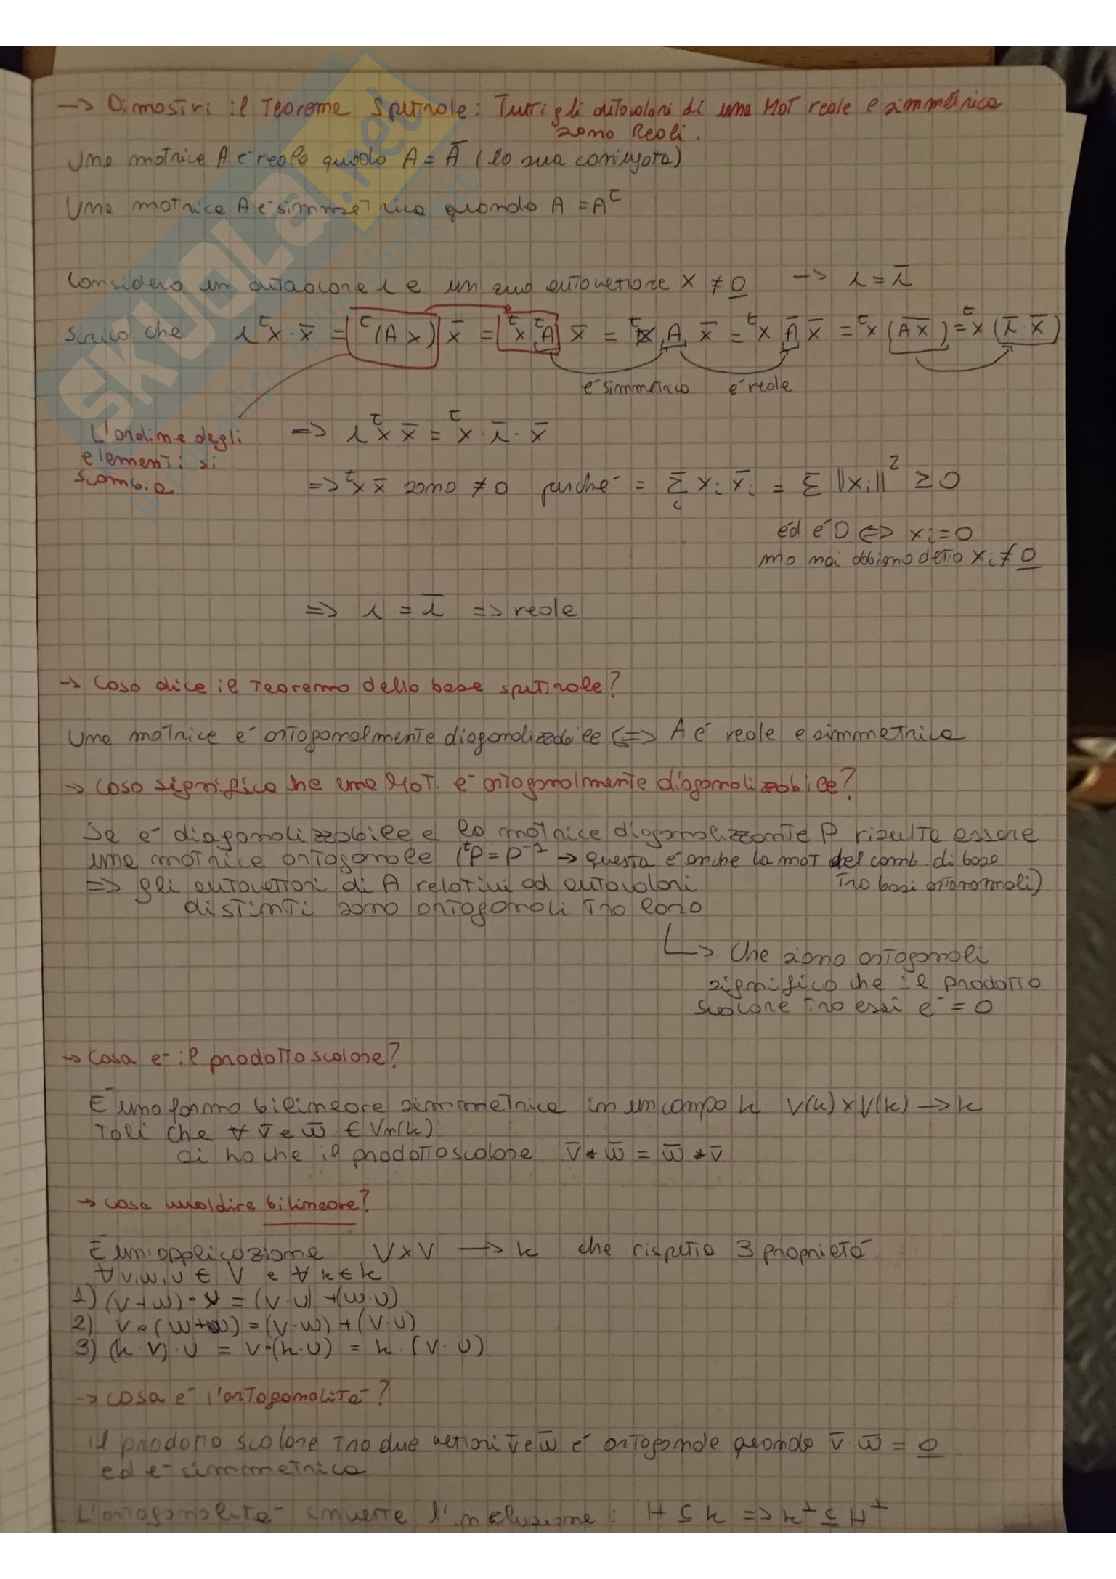 → Dimostri il Teorema Spettrale: Tutti gli autovalori di una MAT reale e simmetrica
sono Reali.
Una matrice A è reale quando A = Ā (la sua coniugata)
Una matrice A è simmetrica quando A = Aᵗ
Considero un autovalore λ e un suo autovettore x ≠ 0 → λ = λ̄
Scrivo che λ ᵗx · x̄ = ᵗ(Ax) x̄ = ᵗx ᵗA x̄ = ᵗx A x̄ = ᵗx Ā x̄ = ᵗx (A̅x̅) = ᵗx (λ̄ · x̄)
è simmetrica è reale
L'ordine degli
elementi si
scambia
=> λ ᵗx x̄ = ᵗx · λ̄ · x̄
=> ᵗx x̄ sono ≠ 0 perché = Σᵢ xᵢ x̄ᵢ = Σ ||xᵢ||² ≥ 0
ed è 0 <=> xᵢ = 0
ma noi abbiamo detto xᵢ ≠ 0
=> λ = λ̄ => reale
→ Cosa dice il Teorema della base spettrale?
Una matrice è ortogonalmente diagonalizzabile <=> A è reale e simmetrica
→ Cosa significa che una MAT. è ortogonalmente diagonalizzabile?
Se è diagonalizzabile e la matrice diagonalizzante P risulta essere
una matrice ortogonale (ᵗP = P⁻¹ → questa è anche la mat del camb. di base
tra basi ortonormali)
=> gli autovettori di A relativi ad autovalori
distinti sono ortogonali tra loro
→ Che siano ortogonali
significa che il prodotto
scalare tra essi è = 0
→ Cosa è il prodotto scalare?
È una forma bilineare simmetrica in un campo k V(k) x V(k) → k
tali che ∀ v̄ e w̄ ∈ Vn(k)
si ha che il prodotto scalare v̄ * w̄ = w̄ * v̄
→ Cosa vuol dire bilineare?
È un'applicazione V x V → k che rispetta 3 proprietà
∀ v, w, u ∈ V e ∀ k ∈ k
1) (v + w) · u = (v · u) + (w · u)
2) v · (w + u) = (v · w) + (v · u)
3) (k · v) · u = v · (k · u) = k · (v · u)
→ Cosa è l'ortogonalità?
Il prodotto scalare tra due vettori v̄ e w̄ è ortogonale quando v̄ w̄ = 0
ed è simmetrica
L'ortogonalità inverte l'inclusione: H ⊆ K => K⊥ ⊆ H⊥
SKUOLA.net